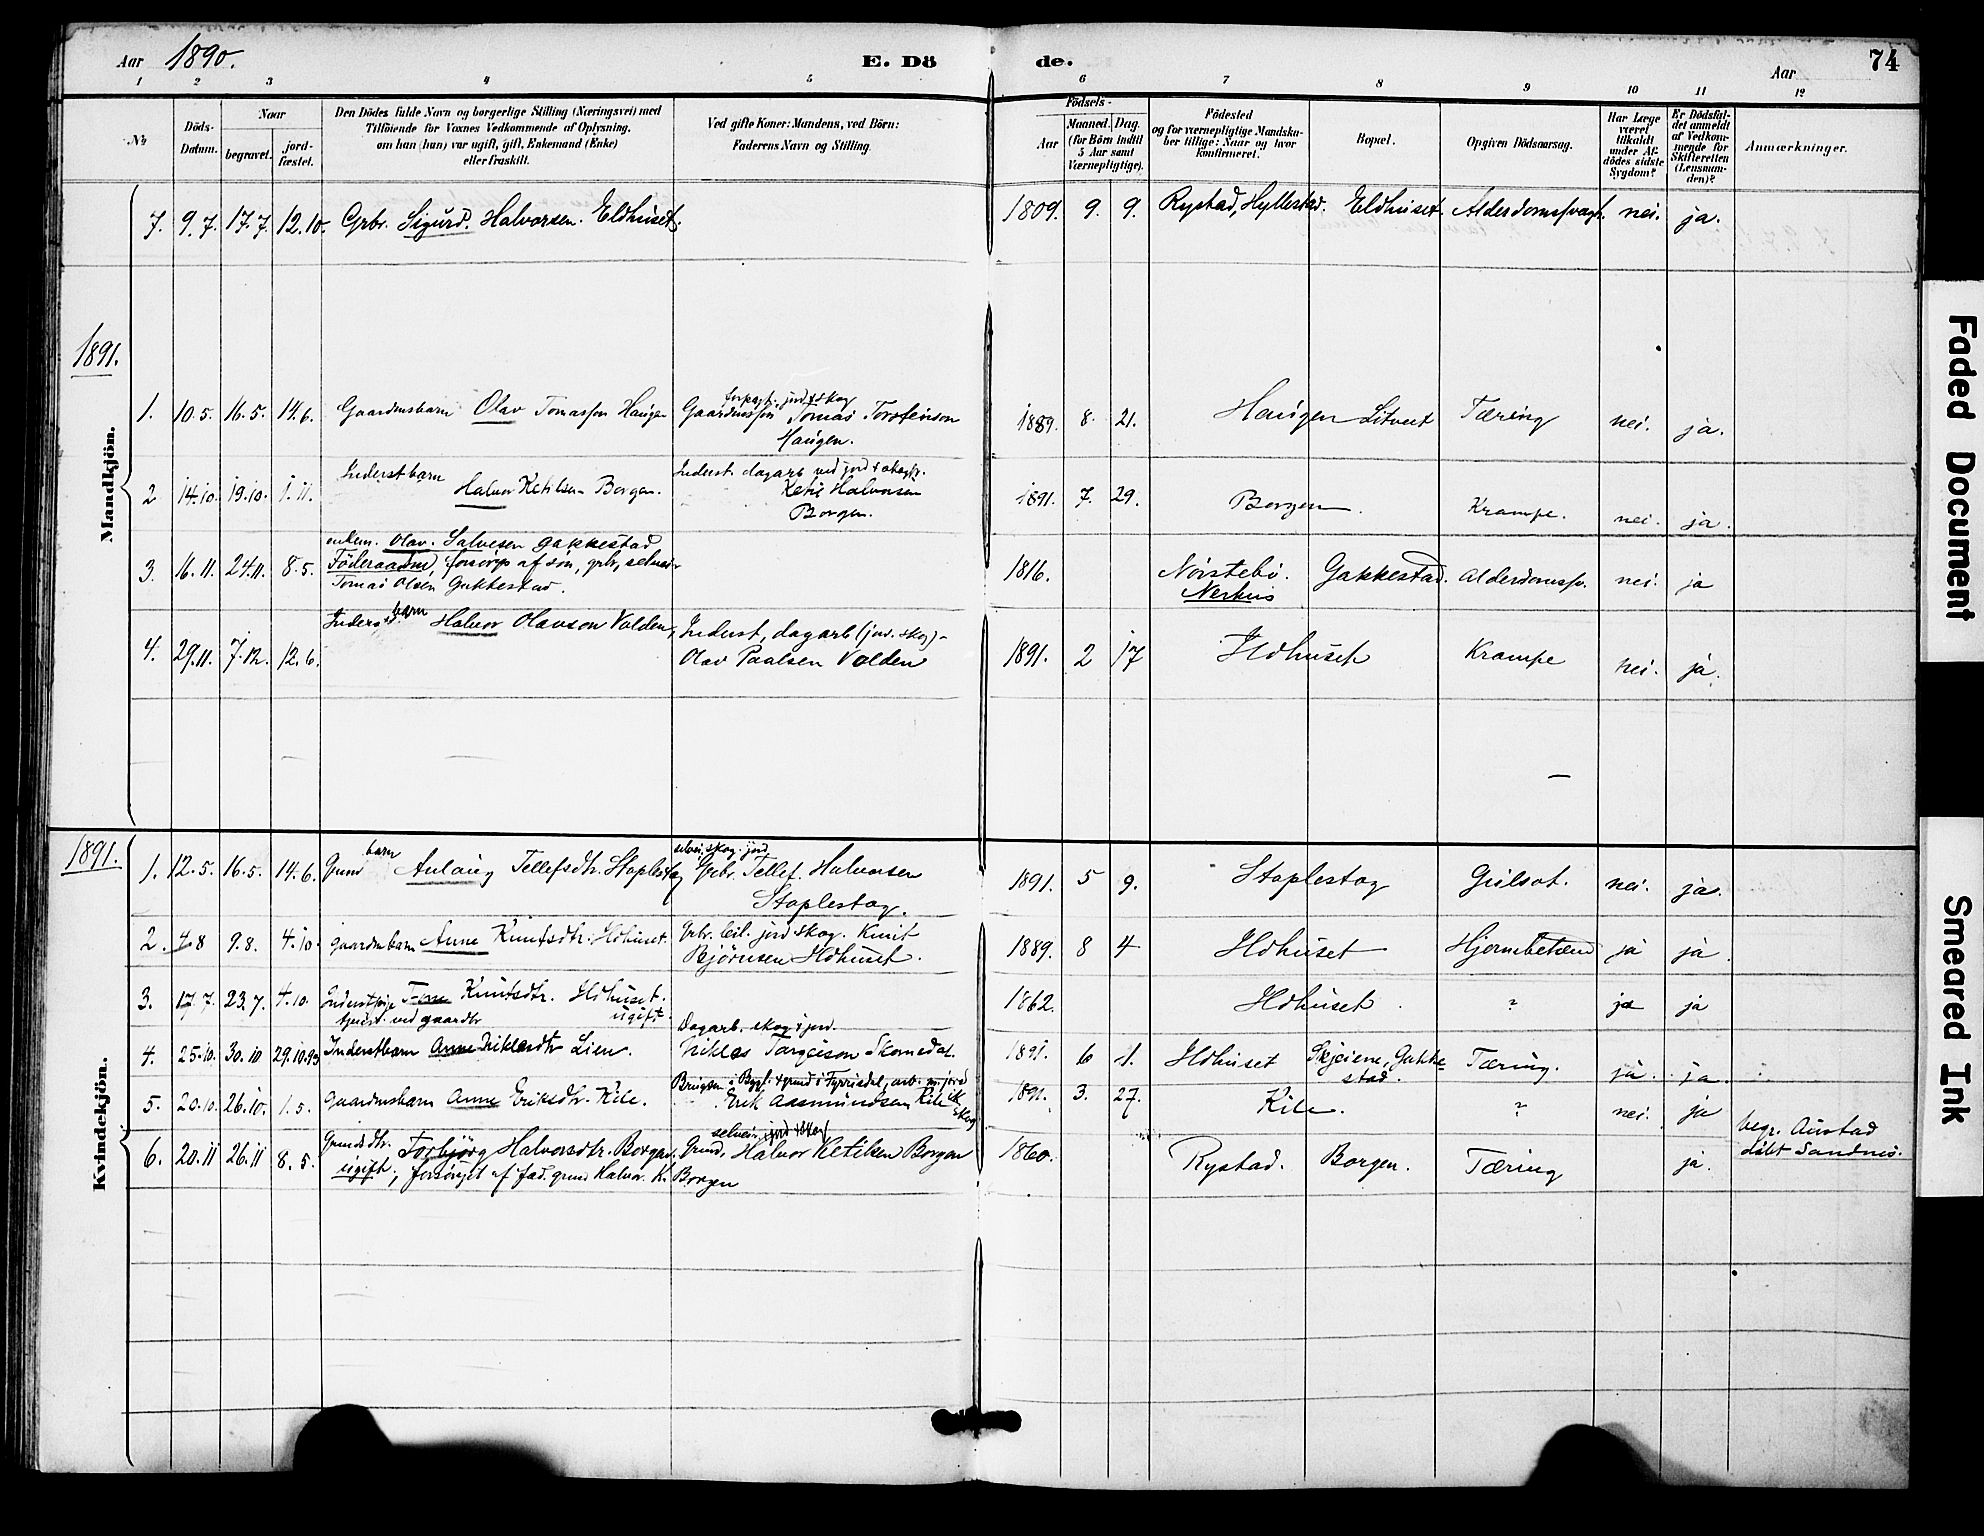 Aar 1890. E. Dö de. Aar 74
1 2 3 4 5 6 7 8 9 10 11 12
No Döds-Datum. Naar begravet. jord-fæstet. Den Dödes fulde Navn og borgerlige Stilling (Næringsvei) med Tilföiende for Voxnes Vedkommende af Oplysning, om han (hun) var ugift, gift, Enkemand (Enke) eller fraskilt. Ved gifte Koner: Mandens, ved Börn: Faderens Navn og Stilling. Födsels- Aar Maaned. Dag. (for Börn indtil 5 Aar samt Værnepligtige). Födested og for værnepligtige Mandska-ber tillige: Naar og hvor konfirmeret. Bopæl. Opgiven Dödsaarsag. Har Læge været tilkaldt under Af-dödes sidste Sygdom? Er Dödsfal-det anmeldt af Vedkom-mende for Skifteretten (Lensman-den)? Anmærkninger.
7. 9.7. 17.7 12.10. Grbr. Sigurd Halvorsen Eldhuset. 1809. 9. 9. Rystad, Hyllestad. Eldhuset. Alderdomssvagh. nei. ja.
1891.
Mandkjön.
1. 10.5. 16.5. 14.6. Gaardmsbarn Olav Tomasson Haugen
forpagt. jord & skog
Gaardmssøn Tomas Torsteinson
Haugen.
1889. 8. 21. Haugen Litveit Tæring nei. ja.
2 14.10. 19.10. 1.11. Inderstbarn
Halvor Ketilsen Borgen.
Inderst. dagarb. ved jord & skog
Ketil Halvorsen
Borgen.
1891. 7. 29. Borgen. Krampe. nei. ja.
3. 16.11. 24.11. 8.5. enkem. Olav Salvesen Gakkestad
Föderaadm, forsörges af sön, grbr, selvei-
Tomas Olsen Gakkestad.
1816. Nörstebö. Gakkestad. Alderdomssv. nei. ja
Nerhus
4. 29.11. 7.12. 12.6. Inderst barn Halvor Olavson Valden,
Inderst, dagarb (jord. skog)-
Olav Paalsen Valden
1891. 2 17 Ildhuset Krampe nei. ja.
1891.
Kvindekjön.
1. 12.5. 16.5. 14.6. Grmd barn Anlaug Tellefsdtr. Staplestog
selvei, skog. jord.
Grbr. Tellef Halvorsen
Staplestog.
1891. 5 9. Staplestog Gulsot. nei. ja.
2. 4.8 9.8. 4.10. gaardmbarn Anne Knutsdtr. Ildhuset.
Grbr. leil. jord skog. Knut
Björnsen Ildhuset.
1889. 8 4 Ildhuset Hjernebetænd ja ja.
3. 17.7. 23.7. 4.10. Inderstpige Tone Knutsdtr. Ildhuset.
tjenst. ved gaardbr ugift.
1862. Ildhuset. ? ja ja
4. 25.10. 30.10 29.10.93 Inderstbarn Anne Niklasdtr Lien.
Dagarb. skog & jord.
Niklas Targeison Skomedal.
1891. 6 1. Ildhuset Skjeiene, Gakke-
stad. Tæring. ja. ja.
5. 20.10. 26.10. 1.5. Gaardmsbarn Anne Eriksdtr. Kile.
Erik Aasmundsen Kile
skog
1891. 3. 27. Kile. ? nei. ja
6. 20.11 26.11 8.5. Grmdsdtr. Torbjörg Halvorsdtr. Borgen,
ugift; forsörget af fad. grmd Halvor K.
selvei. jord & skog
Grmd. Halvor Ketilsen Borgen
Borgen
1860. Rystad. Borgen. Tæring ja.
begr. Austad
döbt Sandnes.
Faded Document
Smeared Ink